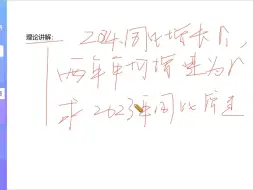 理论讲解：
2024同比增长r，
两年年均增速为r
求2023年同比增速